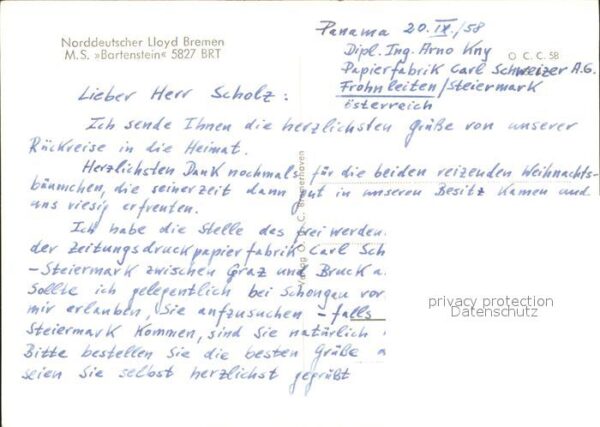 Norddeutscher Lloyd Bremen
M.S. »Bartenstein« 5827 BRT
Panama 20.IX./58
Dipl. Ing. Arno Kny
O. C. C. 58
Papierfabrik Carl Schweizer A.G.
Frohnleiten/Steiermark
Österreich
Lieber Herr Scholz:
Ich sende Ihnen die herzlichsten Grüße von unserer
Rückreise in die Heimat.
Herzlichsten Dank nochmals für die beiden reizenden Weihnachts-
bäumchen, die seinerzeit dann gut in unseren Besitz kamen und
uns riesig erfreuten.
Ich habe die Stelle des frei werden
der Zeitungsdruckpapierfabrik Carl Sch
-Steiermark zwischen Graz und Bruck a.
Sollte ich gelegentlich bei Schongau vor
mir erlauben, Sie aufzusuchen – falls
Steiermark kommen, sind Sie natürlich
Bitte bestellen Sie die besten Grüße
seien Sie selbst herzlichst gegrüßt
Verlag O. C. C. Bremerhaven
privacy protection
Datenschutz